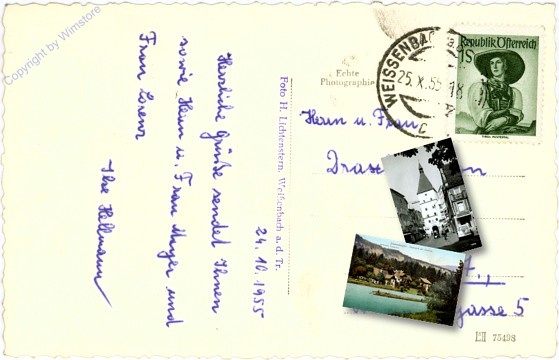 Copyright by Wimstore
Herzliche Grüße sendet Ihnen
sowie Herrn u. Frau Mayer und
Frau Lorenz
Ilse Hellmann
24.10.1955
Foto H. Lichtenstern, Weißenbach a. d. Tr.
Echte
Photographie
WEISSENBACH a.
25.X.55-18
Republik Österreich
1S
Herrn u. Frau
gasse 5
75498